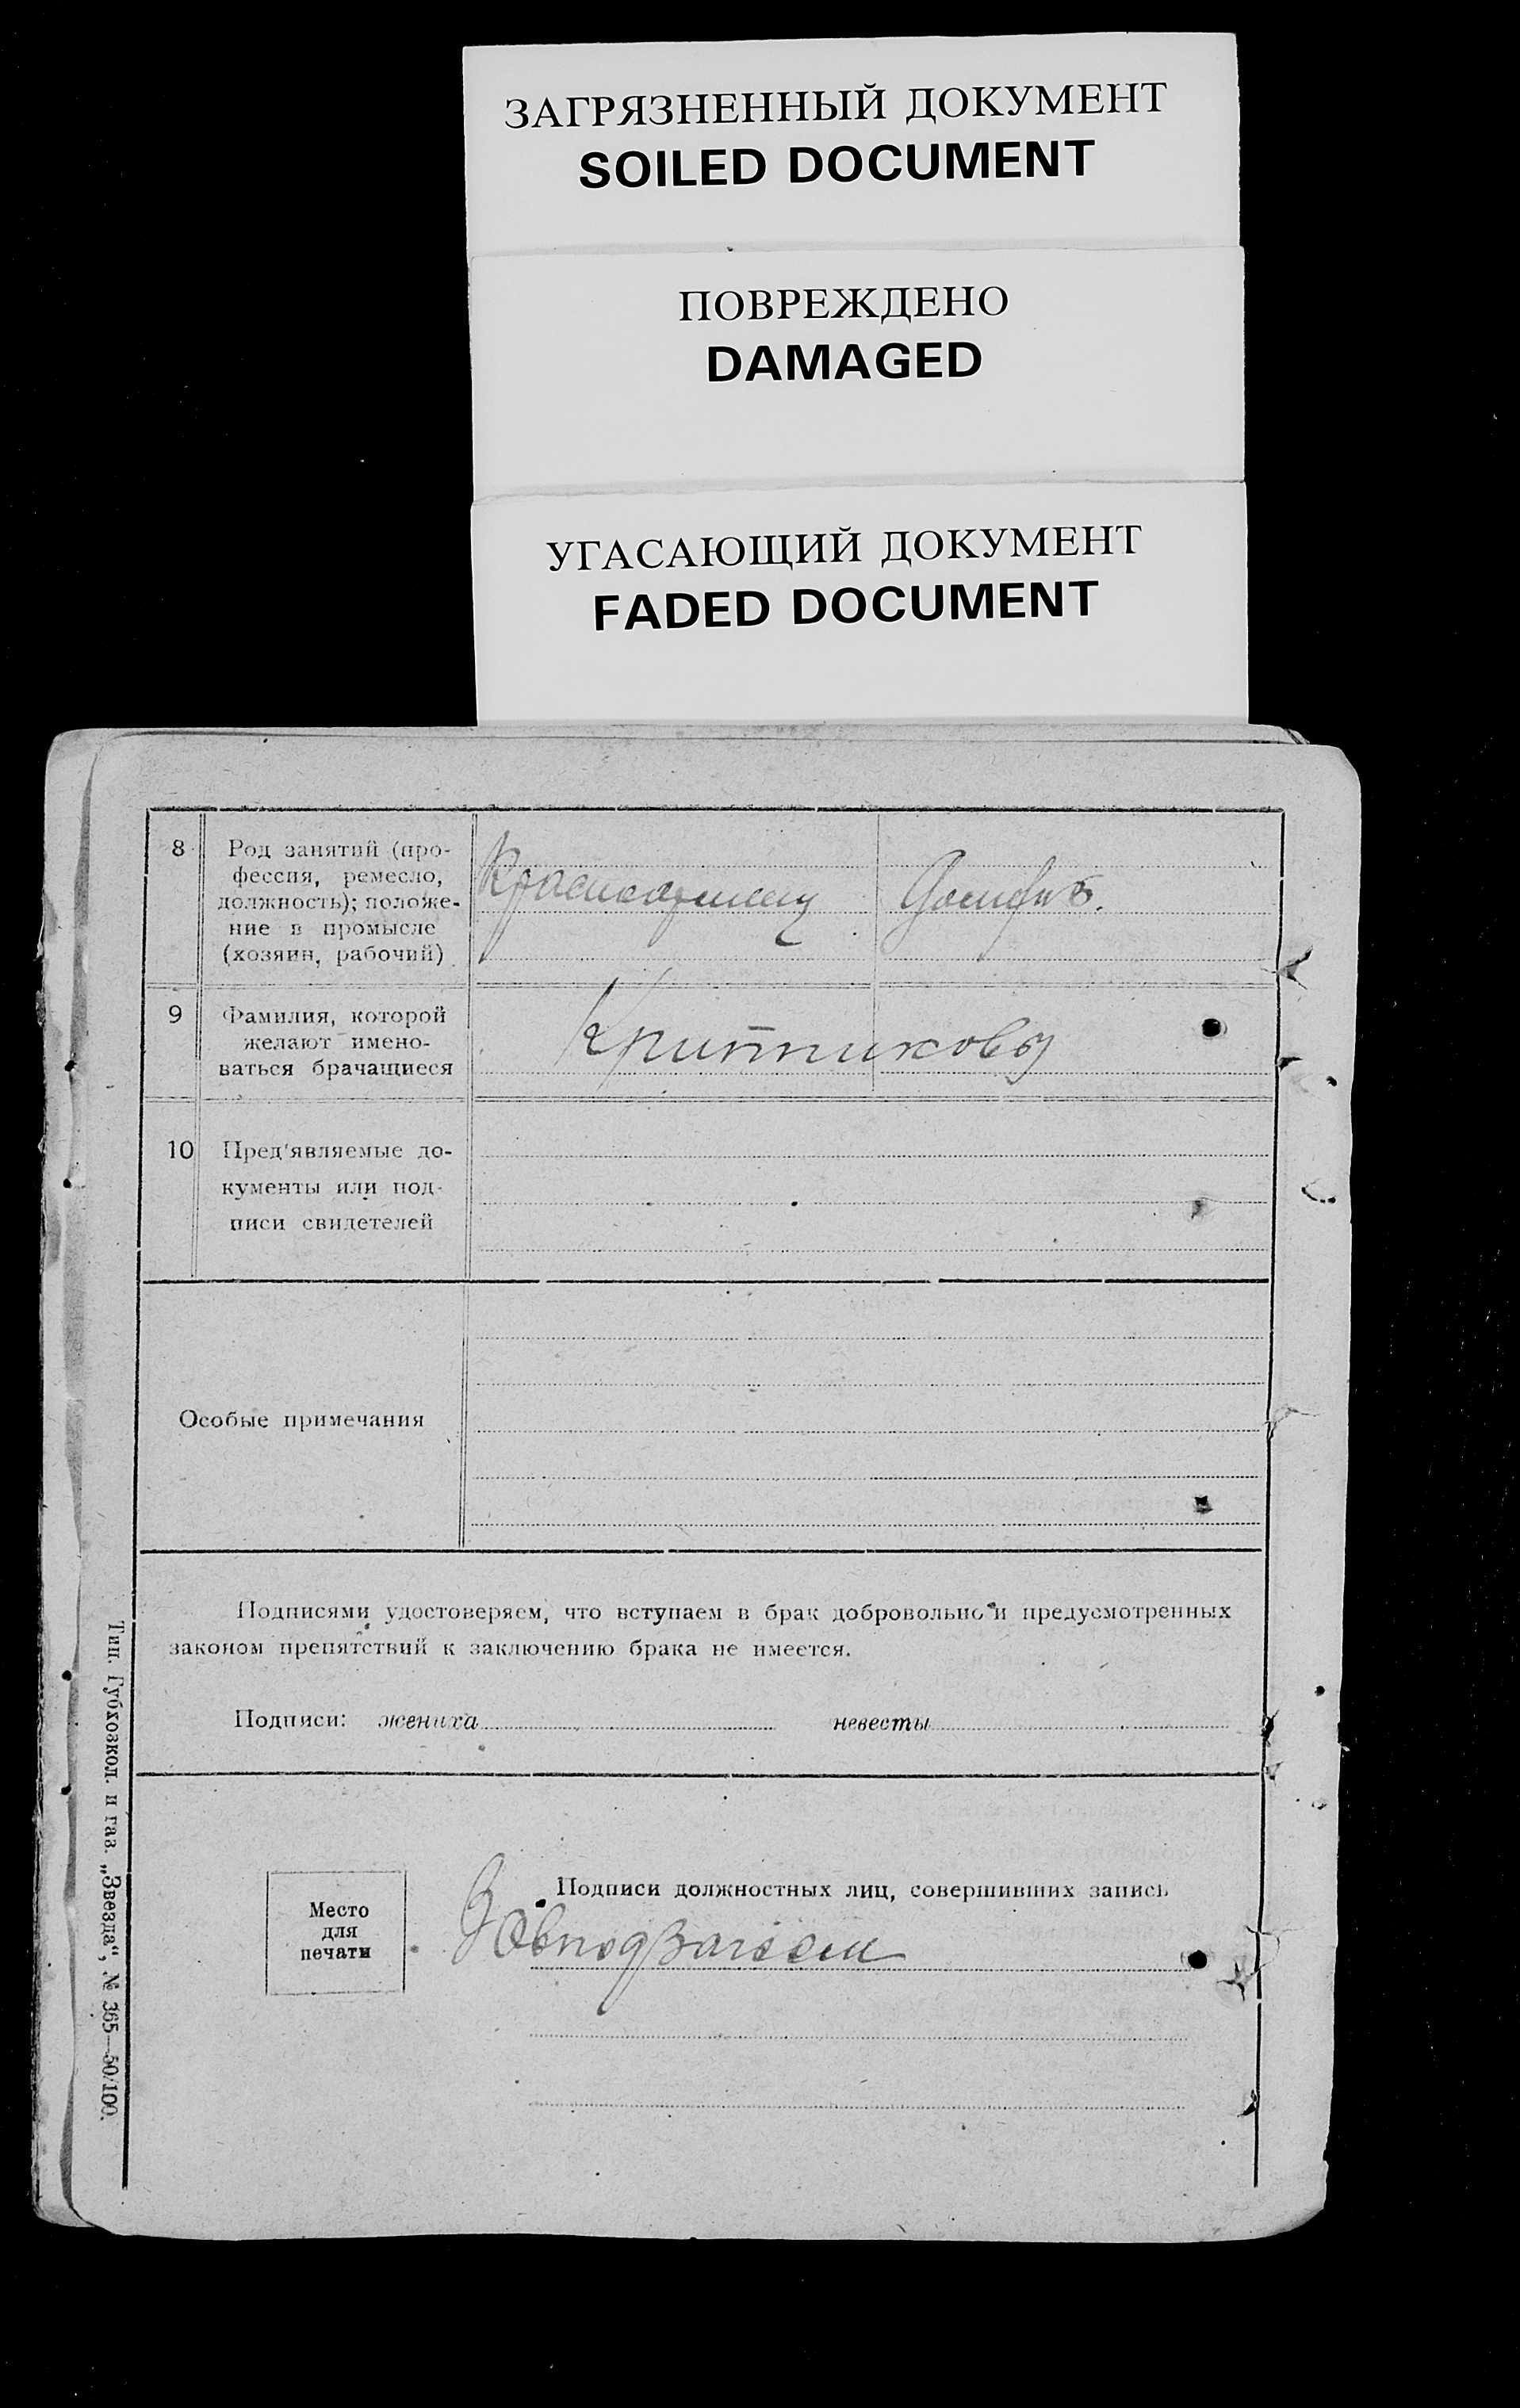 ЗАГРЯЗНЕННЫЙ ДОКУМЕНТ
SOILED DOCUMENT
ПОВРЕЖДЕНО
DAMAGED
УГАСАЮЩИЙ ДОКУМЕНТ
FADED DOCUMENT
8 Род занятий (про-
фессия, ремесло,
должность); положе-
ние в промысле
(хозяин, рабочий)
Красноармеец
9 Фамилия, которой
желают имено-
ваться брачащиеся
10 Пред'являемые до-
кументы или под-
писи свидетелей
Особые примечания
Подписями удостоверяем, что вступаем в брак добровольно и предусмотренных
законом препятствий к заключению брака не имеется.
Подписи: жениха невесты
Место
для
печати
Подписи должностных лиц, совершивших запись
Тип. Губхозкол. и газ. „Звезда", № 365—50/100.